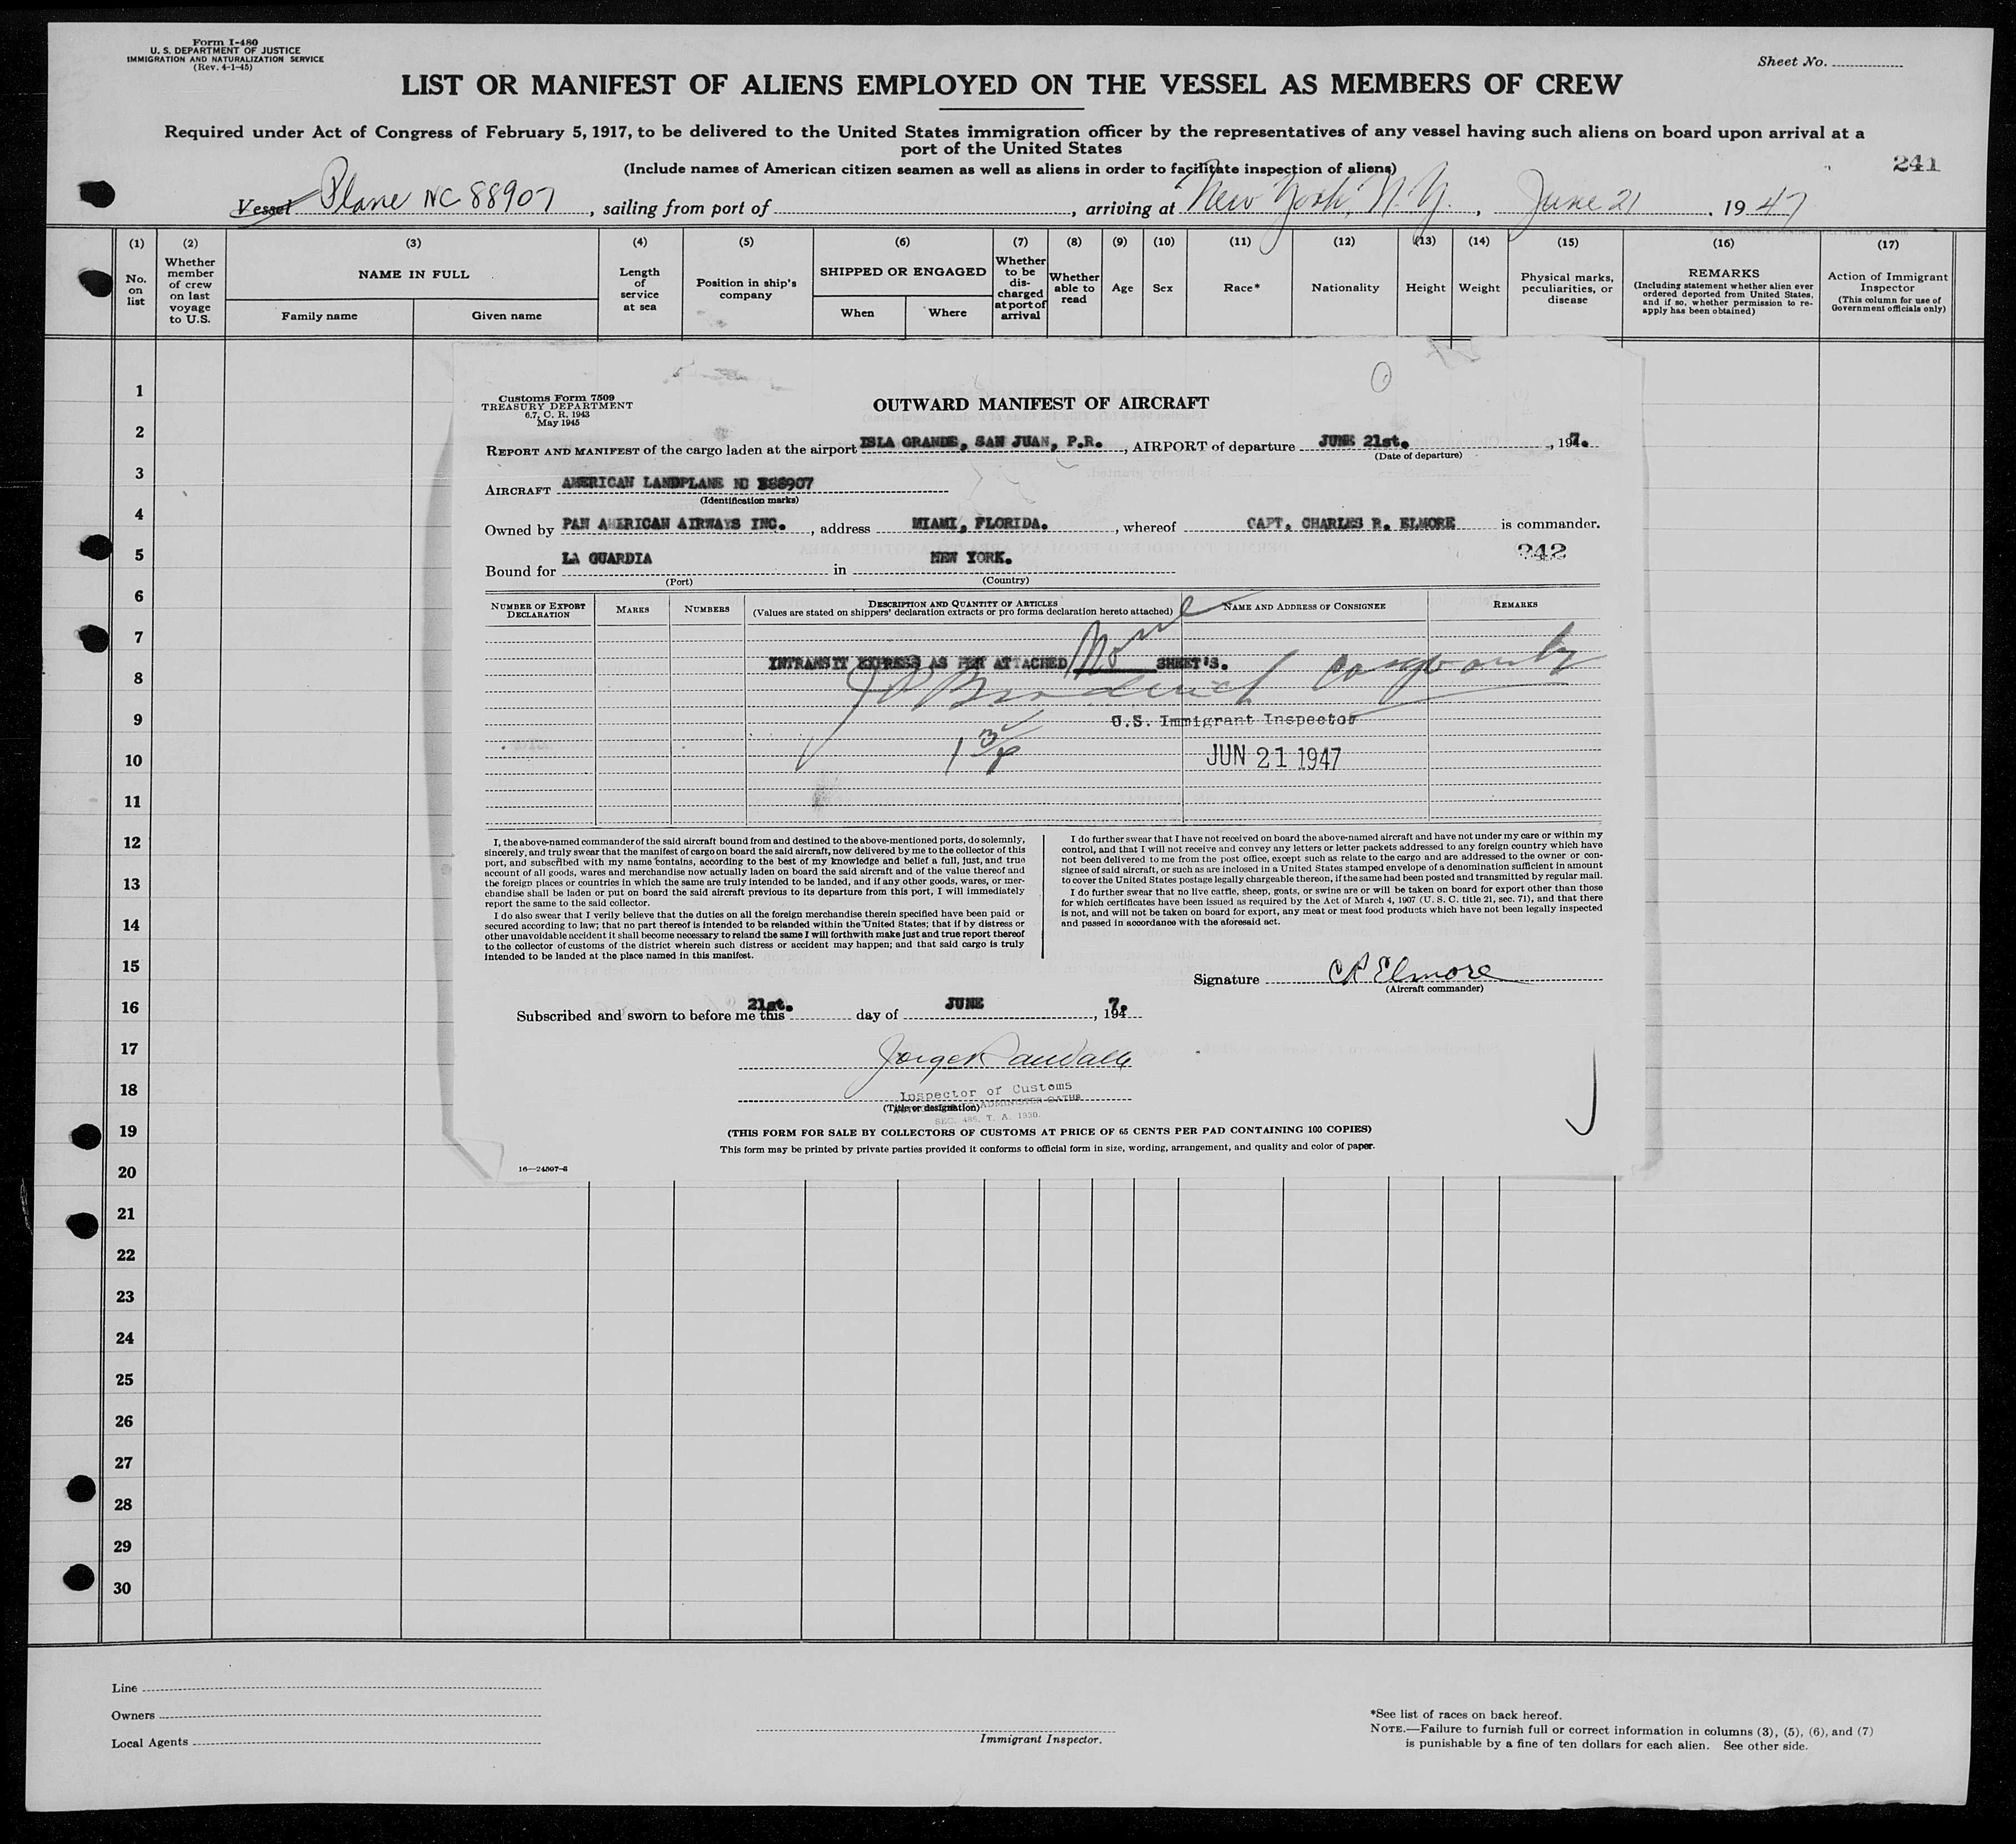 Form I-480
U. S. DEPARTMENT OF JUSTICE
IMMIGRATION AND NATURALIZATION SERVICE
(Rev. 4-1-45)
Sheet No.
LIST OR MANIFEST OF ALIENS EMPLOYED ON THE VESSEL AS MEMBERS OF CREW
Required under Act of Congress of February 5, 1917, to be delivered to the United States immigration officer by the representatives of any vessel having such aliens on board upon arrival at a
port of the United States
(Include names of American citizen seamen as well as aliens in order to facilitate inspection of aliens)
241
Vessel Plane NC 88907, sailing from port of , arriving at New York, N. Y., June 21, 1947
(1) No. on list
(2) Whether member of crew on last voyage to U.S.
(3) NAME IN FULL
Family name
Given name
(4) Length of service at sea
(5) Position in ship's company
(6) SHIPPED OR ENGAGED
When
Where
(7) Whether to be discharged at port of arrival
(8) Whether able to read
(9) Age
(10) Sex
(11) Race*
(12) Nationality
(13) Height
(14) Weight
(15) Physical marks, peculiarities, or disease
(16) REMARKS (Including statement whether alien ever ordered deported from United States, and if so, whether permission to re-apply has been obtained)
(17) Action of Immigrant Inspector (This column for use of Government officials only)
1
2
3
4
5
6
7
8
9
10
11
12
13
14
15
16
17
18
19
20
21
22
23
24
25
26
27
28
29
30
Customs Form 7509
TREASURY DEPARTMENT
6.7, C. R. 1943
May 1945
OUTWARD MANIFEST OF AIRCRAFT
REPORT AND MANIFEST of the cargo laden at the airport ISLA GRANDE, SAN JUAN, P.R., AIRPORT of departure JUNE 21st., 1947.
(Date of departure)
AIRCRAFT AMERICAN LANDPLANE NC 88907
(Identification marks)
Owned by PAN AMERICAN AIRWAYS INC., address MIAMI, FLORIDA., whereof CAPT. CHARLES R. ELMORE is commander.
242
Bound for LA GUARDIA in NEW YORK.
(Port) (Country)
NUMBER OF EXPORT DECLARATION
MARKS
NUMBERS
DESCRIPTION AND QUANTITY OF ARTICLES
(Values are stated on shippers' declaration extracts or pro forma declaration hereto attached)
NAME AND ADDRESS OF CONSIGNEE
REMARKS
INTRANSIT EXPRESS AS PER ATTACHED None SHEET'S.
Cargo only
U.S. Immigrant Inspector
JUN 21 1947
I, the above-named commander of the said aircraft bound from and destined to the above-mentioned ports, do solemnly,
sincerely, and truly swear that the manifest of cargo on board the said aircraft, now delivered by me to the collector of this
port, and subscribed with my name contains, according to the best of my knowledge and belief a full, just, and true
account of all goods, wares and merchandise now actually laden on board the said aircraft and of the value thereof and
the foreign places or countries in which the same are truly intended to be landed, and if any other goods, wares, or mer-
chandise shall be laden or put on board the said aircraft previous to its departure from this port, I will immediately
report the same to the said collector.
I do also swear that I verily believe that the duties on all the foreign merchandise therein specified have been paid or
secured according to law; that no part thereof is intended to be relanded within the United States; that if by distress or
other unavoidable accident it shall become necessary to reland the same I will forthwith make just and true report thereof
to the collector of customs of the district wherein such distress or accident may happen; and that said cargo is truly
intended to be landed at the place named in this manifest.
I do further swear that I have not received on board the above-named aircraft and have not under my care or within my
control, and that I will not receive and convey any letters or letter packets addressed to any foreign country which have
not been delivered to me from the post office, except such as relate to the cargo and are addressed to the owner or con-
signee of said aircraft, or such as are inclosed in a United States stamped envelope of a denomination sufficient in amount
to cover the United States postage legally chargeable thereon, if the same had been posted and transmitted by regular mail.
I do further swear that no live cattle, sheep, goats, or swine are or will be taken on board for export other than those
for which certificates have been issued as required by the Act of March 4, 1907 (U. S. C. title 21, sec. 71), and that there
is not, and will not be taken on board for export, any meat or meat food products which have not been legally inspected
and passed in accordance with the aforesaid act.
Signature CR Elmore
(Aircraft commander)
Subscribed and sworn to before me this 21st. day of JUNE, 1947.
Inspector of Customs
(Title or designation) ADMINISTER OATHS
SEC. 486, T. A. 1930.
(THIS FORM FOR SALE BY COLLECTORS OF CUSTOMS AT PRICE OF 65 CENTS PER PAD CONTAINING 100 COPIES)
This form may be printed by private parties provided it conforms to official form in size, wording, arrangement, and quality and color of paper.
16—24507-3
Line
Owners
Local Agents
Immigrant Inspector.
*See list of races on back hereof.
NOTE.—Failure to furnish full or correct information in columns (3), (5), (6), and (7)
is punishable by a fine of ten dollars for each alien. See other side.